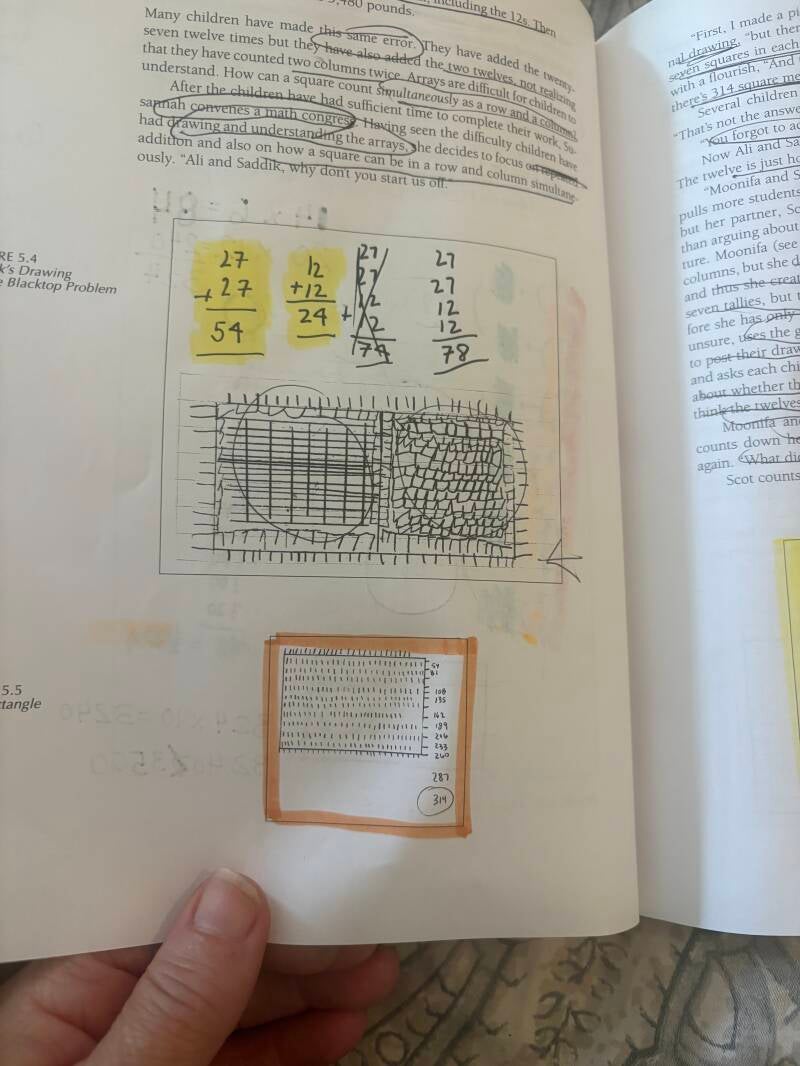 3,480 pounds.
including the 12s. Then
Many children have made this same error. They have added the twenty-
seven twelve times but they have also added the two twelves, not realizing
that they have counted two columns twice. Arrays are difficult for children to
understand. How can a square count simultaneously as a row and a column?
After the children have had sufficient time to complete their work, Su-
sannah convenes a math congress. Having seen the difficulty children have
had drawing and understanding the arrays, she decides to focus on repeated
addition and also on how a square can be in a row and column simultane-
ously. "Ali and Saddik, why don't you start us off."
RE 5.4
k's Drawing
e Blacktop Problem
27 12 27 27
+ 27 +12 27 27
54 24 + 12 12
12 12
74 78
5.5
ctangle
54
81
108
135
162
189
206
233
260
287
314
"First, I made a pi
nal drawing, "but ther
seven squares in each
with a flourish, "And
there's 314 square me
Several children
"That's not the answe
"You forgot to ad
Now Ali and Sa
The twelve is just ho
"Moonifa and S
pulls more students
but her partner, Sc
than arguing about
ture. Moonifa (see
columns, but she d
and thus she creat
seven tallies, but t
fore she has only
unsure, uses the g
to post their draw
and asks each chi
about whether th
think the twelves
Moonifa and
counts down he
again. "What di
Scot counts